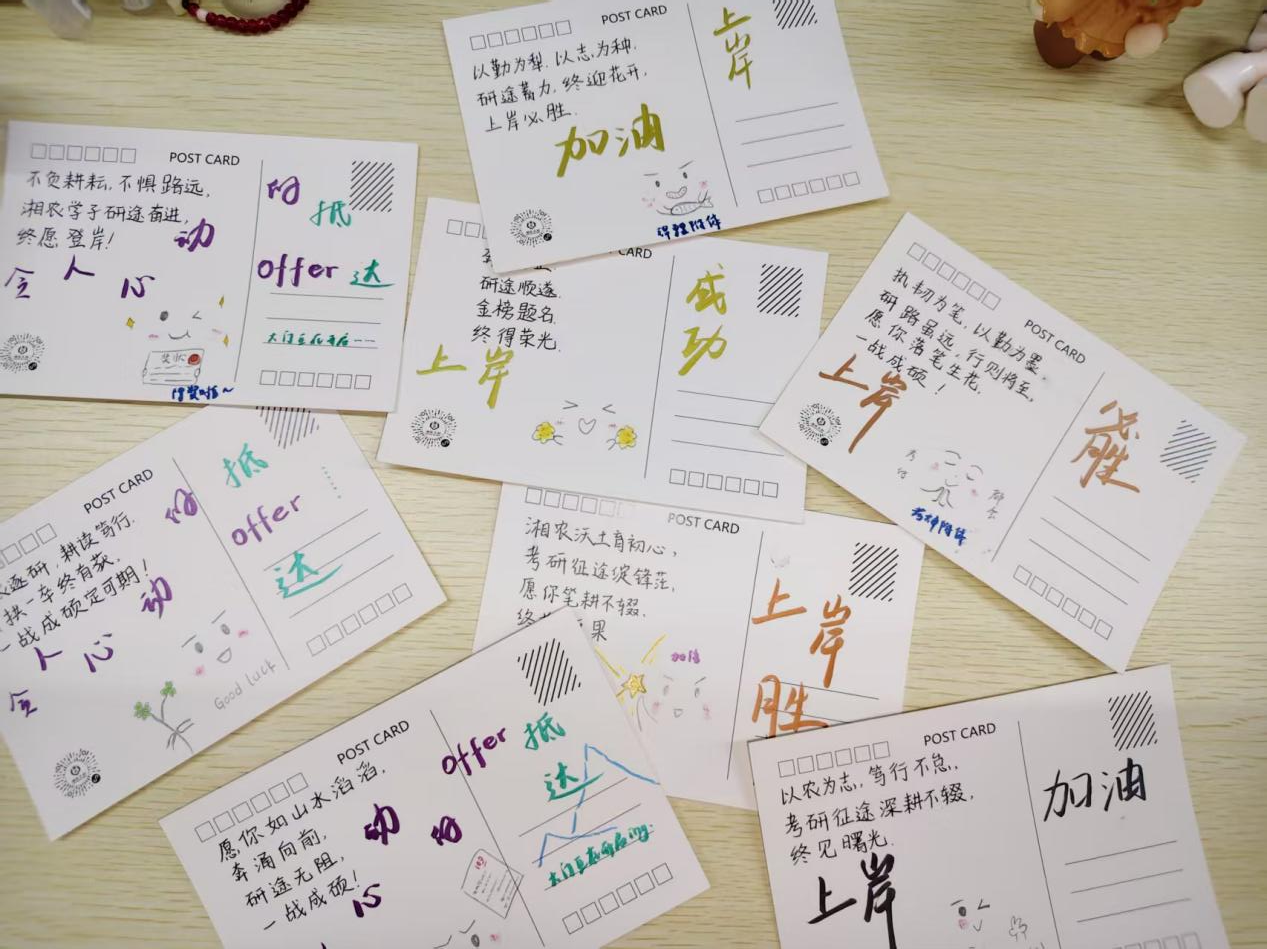 POST CARD
以勤为犁，以志为种，
研途蓄力，终迎花开，
上岸必胜
加油
上岸
POST CARD
不负耕耘，不惧路远，
湘农学子研途奋进，
终愿登岸！
令人心动
的
offer
抵达
奖状
POST CARD
研途顺遂
金榜题名
终得荣光
上岸
成功
POST CARD
执韧为笔，以勤为墨
研路虽远，行则将至，
愿你落笔生花，
一战成硕！
上岸
必胜
考神附体
POST CARD
逐研，耕读笃行
拱一卒终有获，
一战成硕定可期！
令人心动
的
offer
抵达
Good luck
POST CARD
湘农沃土育初心，
考研征途绽锋芒，
愿你笔耕不辍，
果
加油
上岸
胜
POST CARD
愿你如山水滔滔，
奔涌向前，
研途无阻，
一战成硕！
心动的
offer
抵达
POST CARD
以农为志，笃行不怠，
考研征途深耕不辍，
终见曙光
上岸
加油